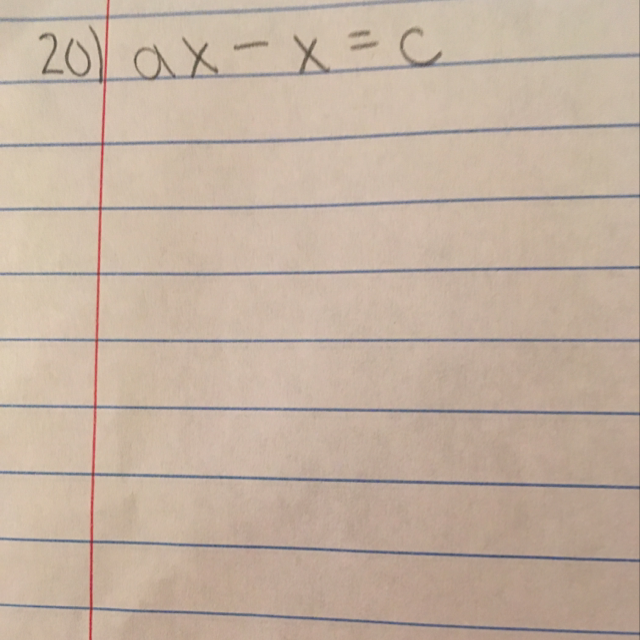 20) ax - x = c